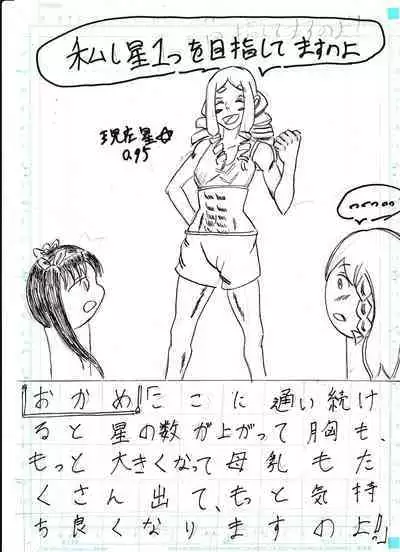 私し星1つを目指してますのよ
現在星☆
0.95
おかめ「ここに通い続け
ると星の数が上がって胸も、
もっと大きくなって母乳もた
くさん出て、もっと気持
ち良くなりますのよ!!」